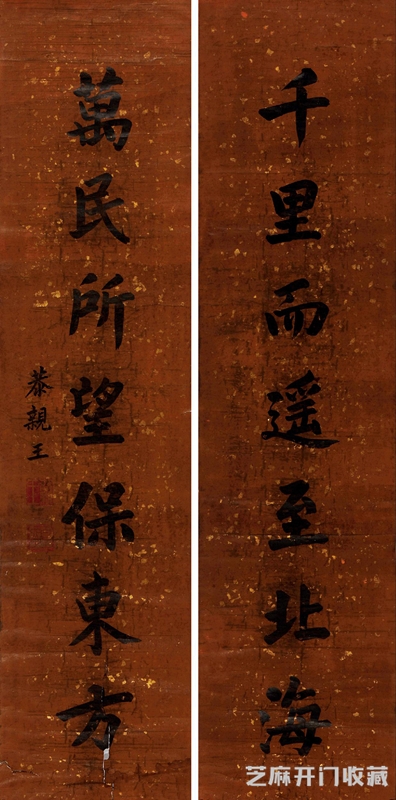 千里而遥至北海
萬民所望保東方
恭親王
芝麻开门收藏